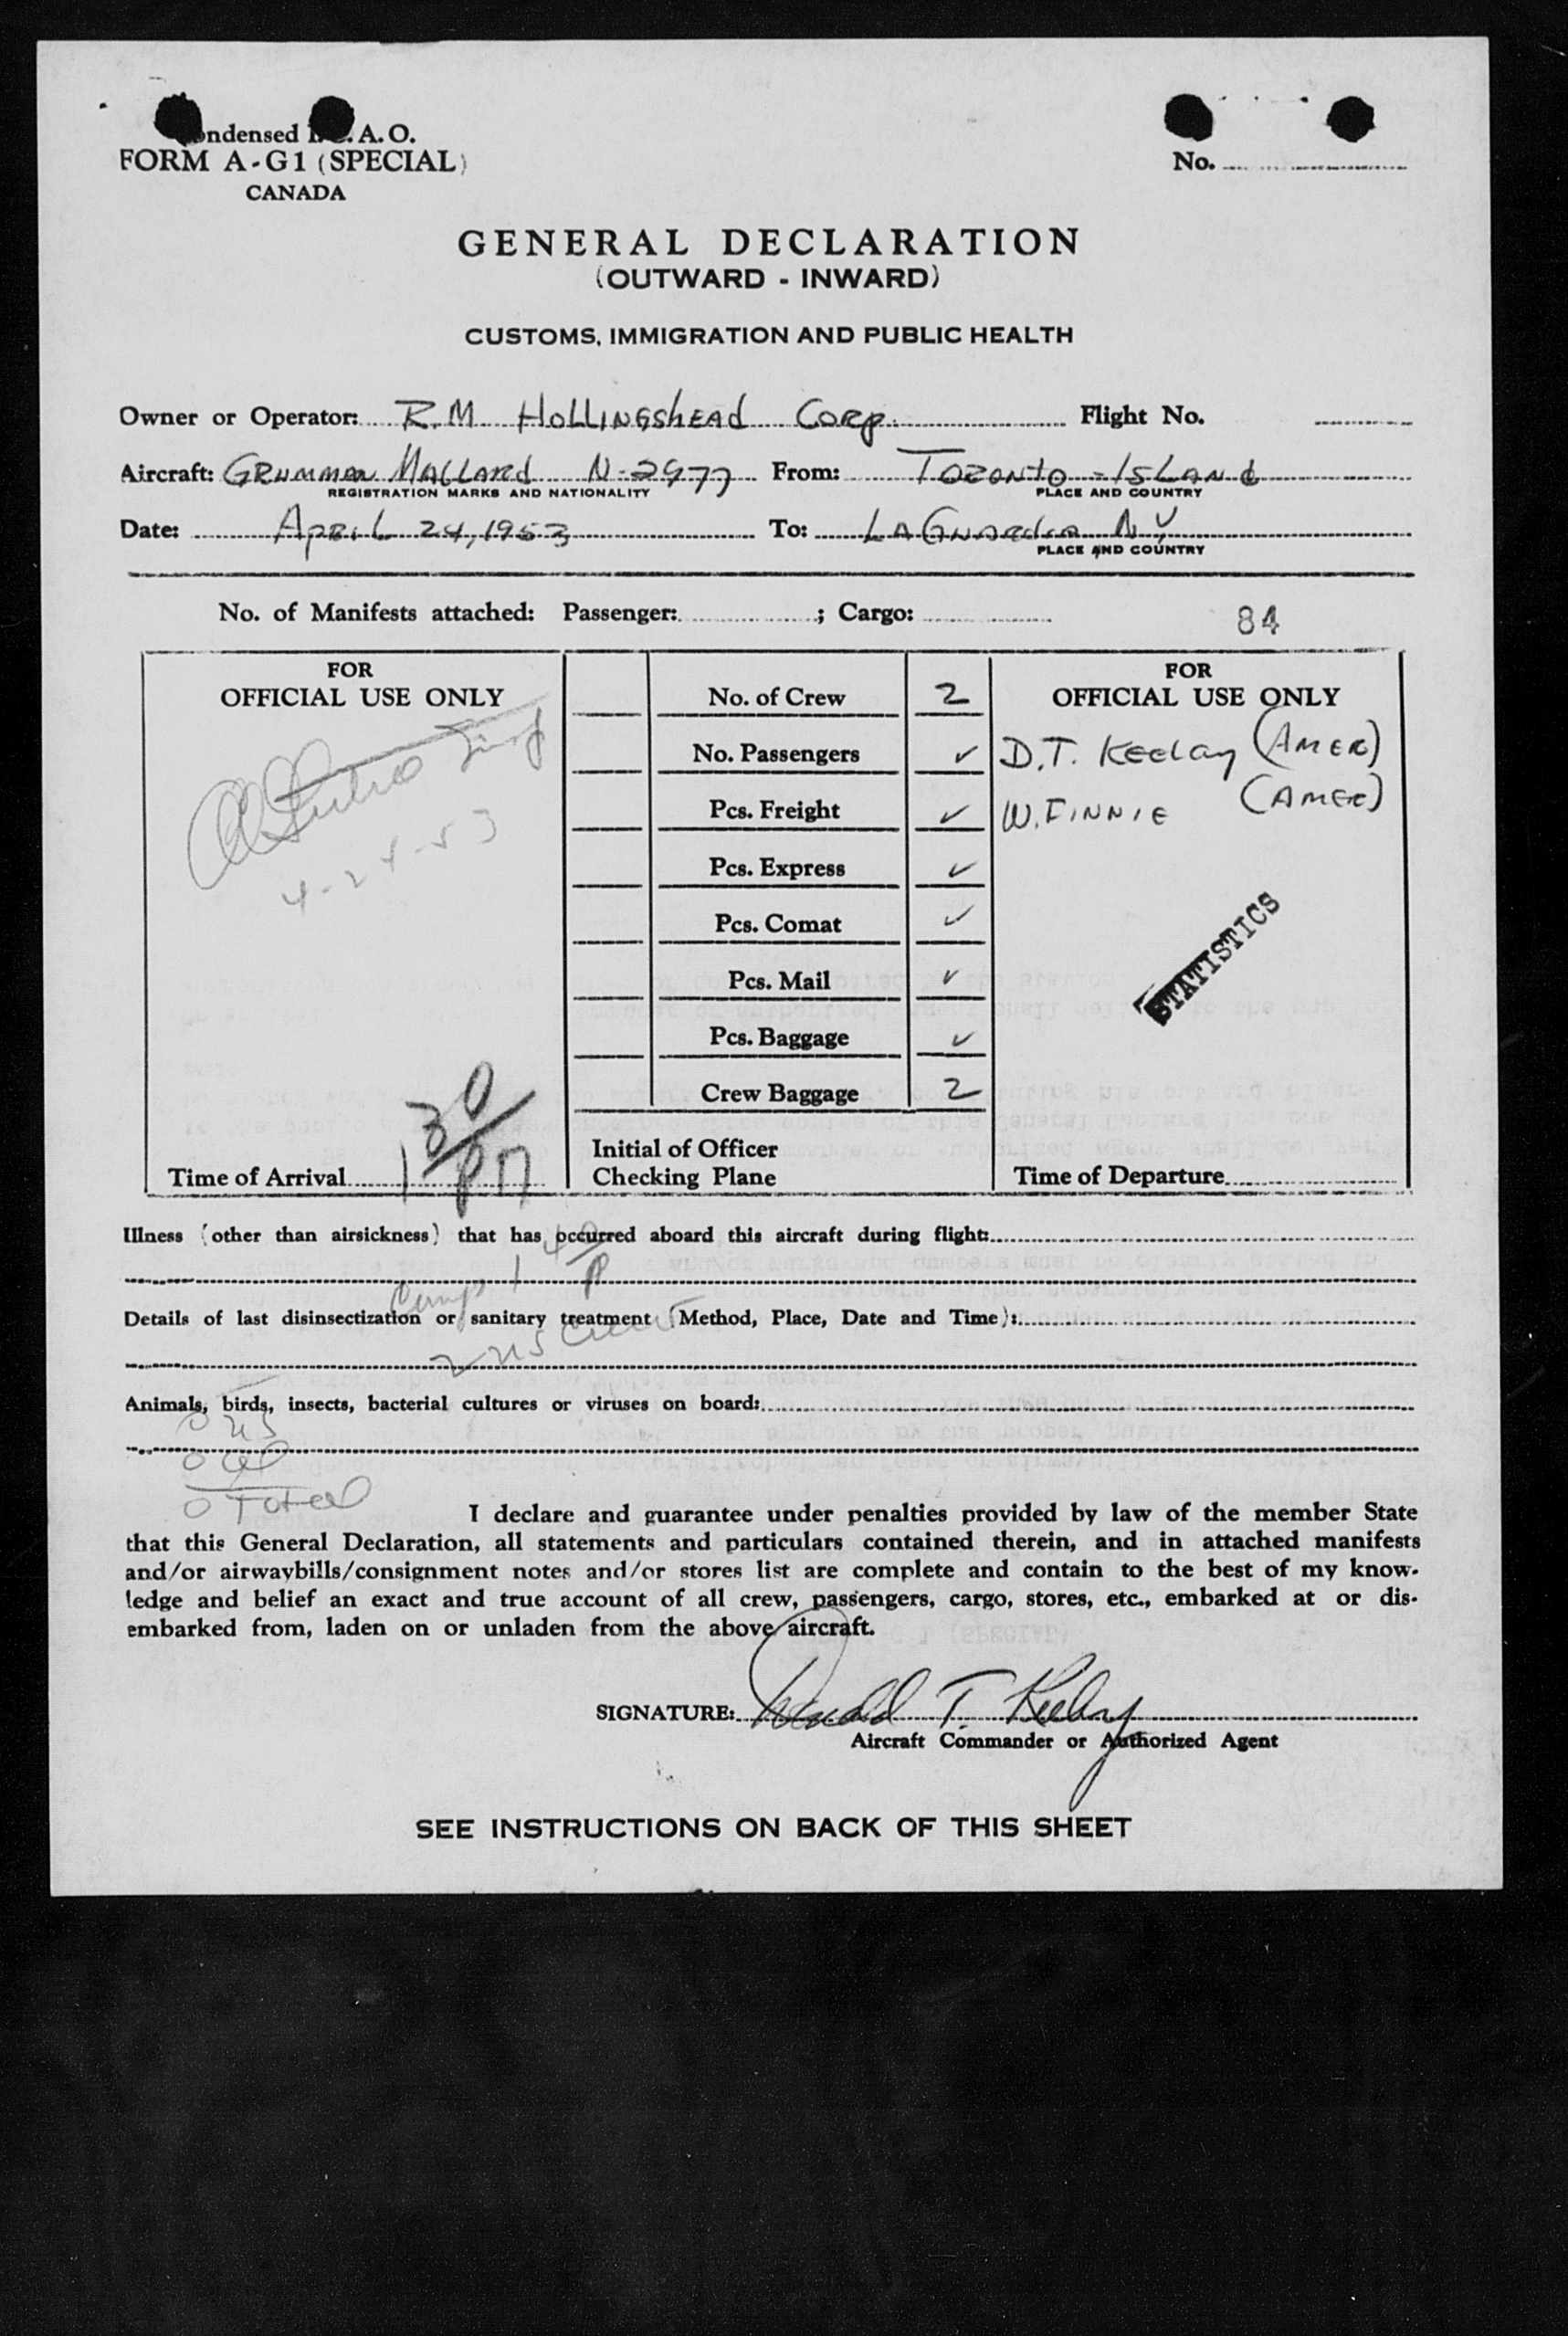 ndensed I. A. O.
FORM A-G1 (SPECIAL)
CANADA
No.
GENERAL DECLARATION
(OUTWARD - INWARD)
CUSTOMS, IMMIGRATION AND PUBLIC HEALTH
Owner or Operator: R.M HOLLINGSHEAD CORP. Flight No.
Aircraft: GRUMMAN MALLARD N-2977 From: TORONTO - ISLAND
REGISTRATION MARKS AND NATIONALITY PLACE AND COUNTRY
Date: APRIL 24, 1953 To: LAGUARDIA N.Y
PLACE AND COUNTRY
No. of Manifests attached: Passenger: ; Cargo: 84
FOR
OFFICIAL USE ONLY
4-24-53
Time of Arrival 1 30/PM
No. of Crew 2
No. Passengers ✓
Pcs. Freight ✓
Pcs. Express ✓
Pcs. Comat ✓
Pcs. Mail ✓
Pcs. Baggage ✓
Crew Baggage 2
Initial of Officer
Checking Plane
FOR
OFFICIAL USE ONLY
D.T. Keelay (AMER)
W. FINNIE (AMER)
STATISTICS
Time of Departure
Illness (other than airsickness) that has occurred aboard this aircraft during flight:
1 40/P
Details of last disinsectization or sanitary treatment (Method, Place, Date and Time):
2 US Crew
Animals, birds, insects, bacterial cultures or viruses on board:
0 US
0
0 Total
I declare and guarantee under penalties provided by law of the member State
that this General Declaration, all statements and particulars contained therein, and in attached manifests
and/or airwaybills/consignment notes and/or stores list are complete and contain to the best of my know-
ledge and belief an exact and true account of all crew, passengers, cargo, stores, etc., embarked at or dis-
embarked from, laden on or unladen from the above aircraft.
SIGNATURE: Donald T. Keelay
Aircraft Commander or Authorized Agent
SEE INSTRUCTIONS ON BACK OF THIS SHEET